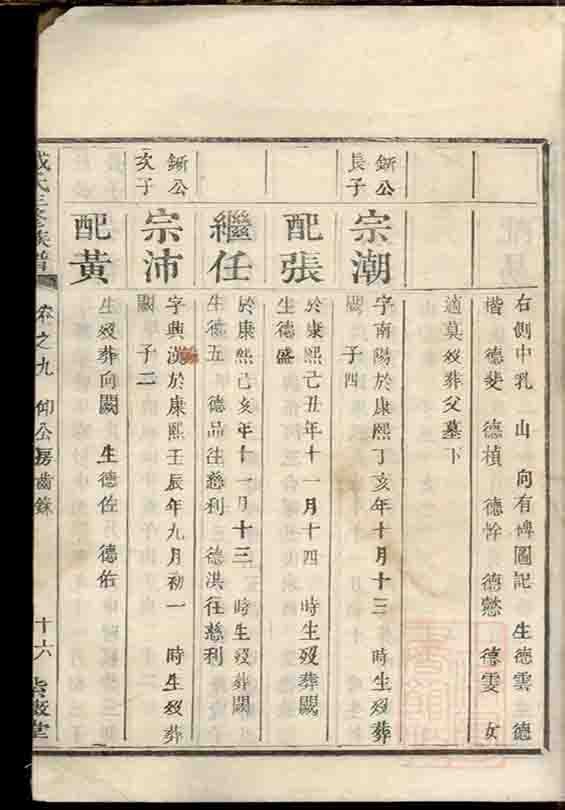 右側中乳 山 向有碑圖記 生德雲 德
楷 德斐 德楨 德幹 德懋 德雯 女
適莫歿葬父墓下
鉅公
長子
宗潮
字南陽於康熙丁亥年十月十三 時生歿葬
闕 子四
配張
於康熙己丑年十一月十四 時生歿葬闕
生德盛
繼任
於康熙己亥年十一月十三 時生歿葬闕
生德五 德品往慈利 德洪往慈利
鉅公
次子
宗沛
字興漢於康熙壬辰年九月初一 時生歿葬
闕 子二
配黃
生歿葬向闕 生德佐 德佑
成氏三修族譜
卷之九 仰公房齒錄
十六 紫 堂